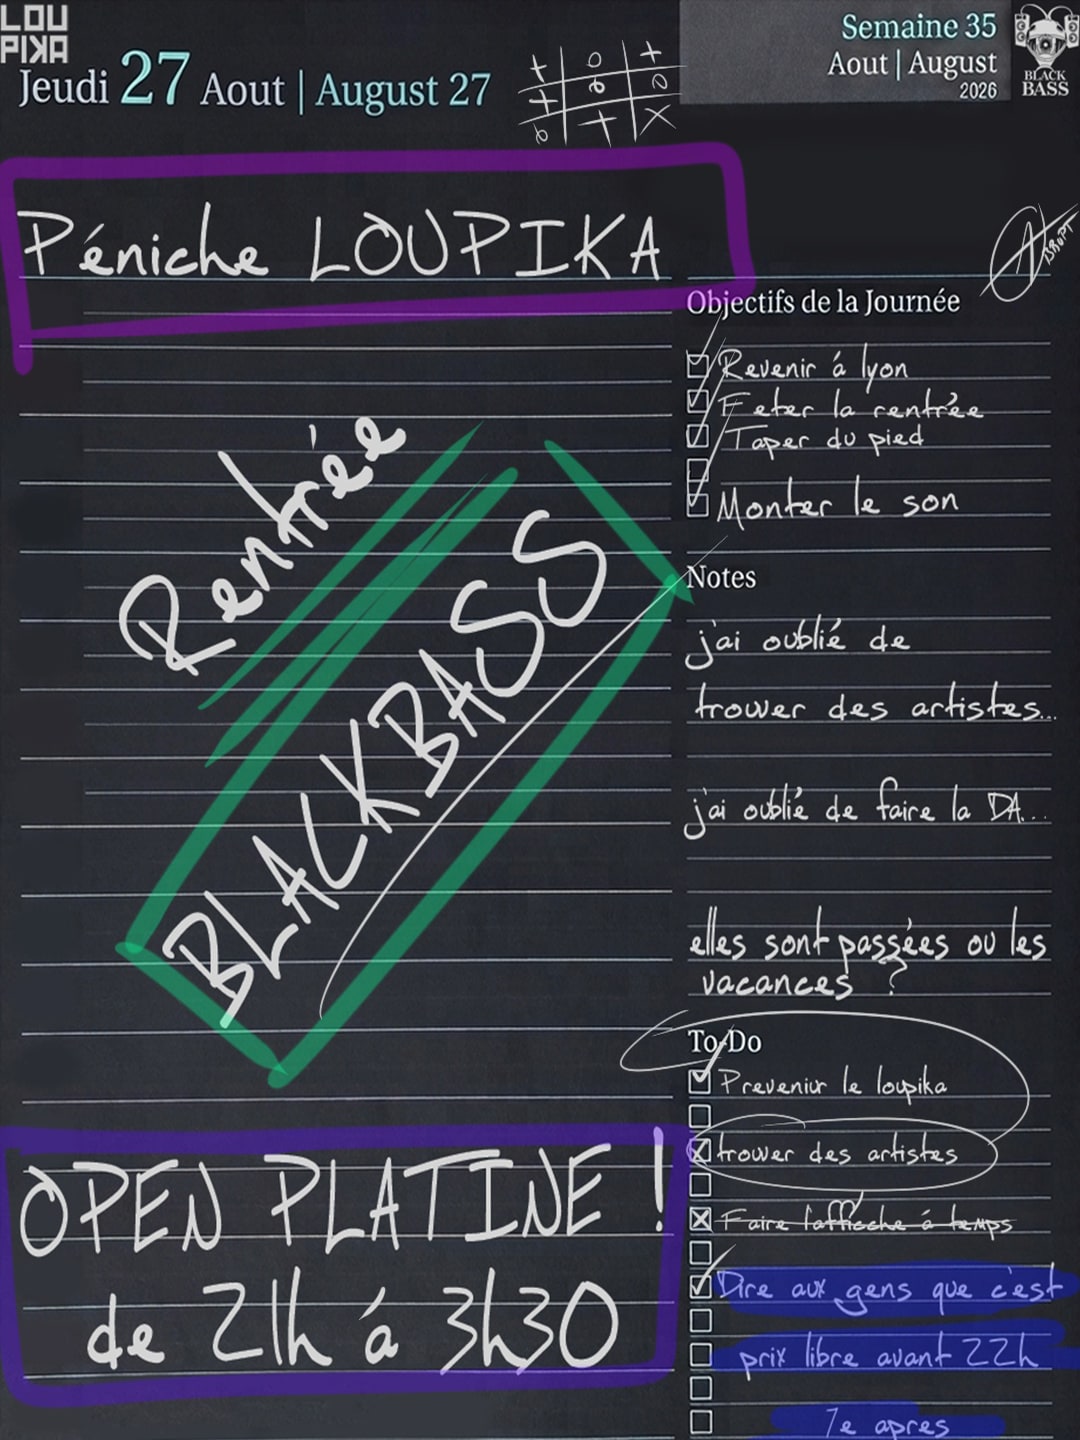 LOU
PIKA
Jeudi 27 Aout | August 27
Semaine 35
Aout | August
2026
BLACK
BASS
Péniche LOUPIKA
Rentrée
BLACKBASS
OPEN PLATINE !
de 21h à 3h30
Objectifs de la Journée
Revenir à lyon
Feter la rentrée
Taper du pied
Monter le son
Notes
j'ai oublié de
trouver des artistes...
j'ai oublié de faire la DA...
elles sont passées ou les
vacances ?
To-Do
Prevenir le loupika
trouver des artistes
Faire l'affiche à temps
Dire aux gens que c'est
prix libre avant 22h
7e apres